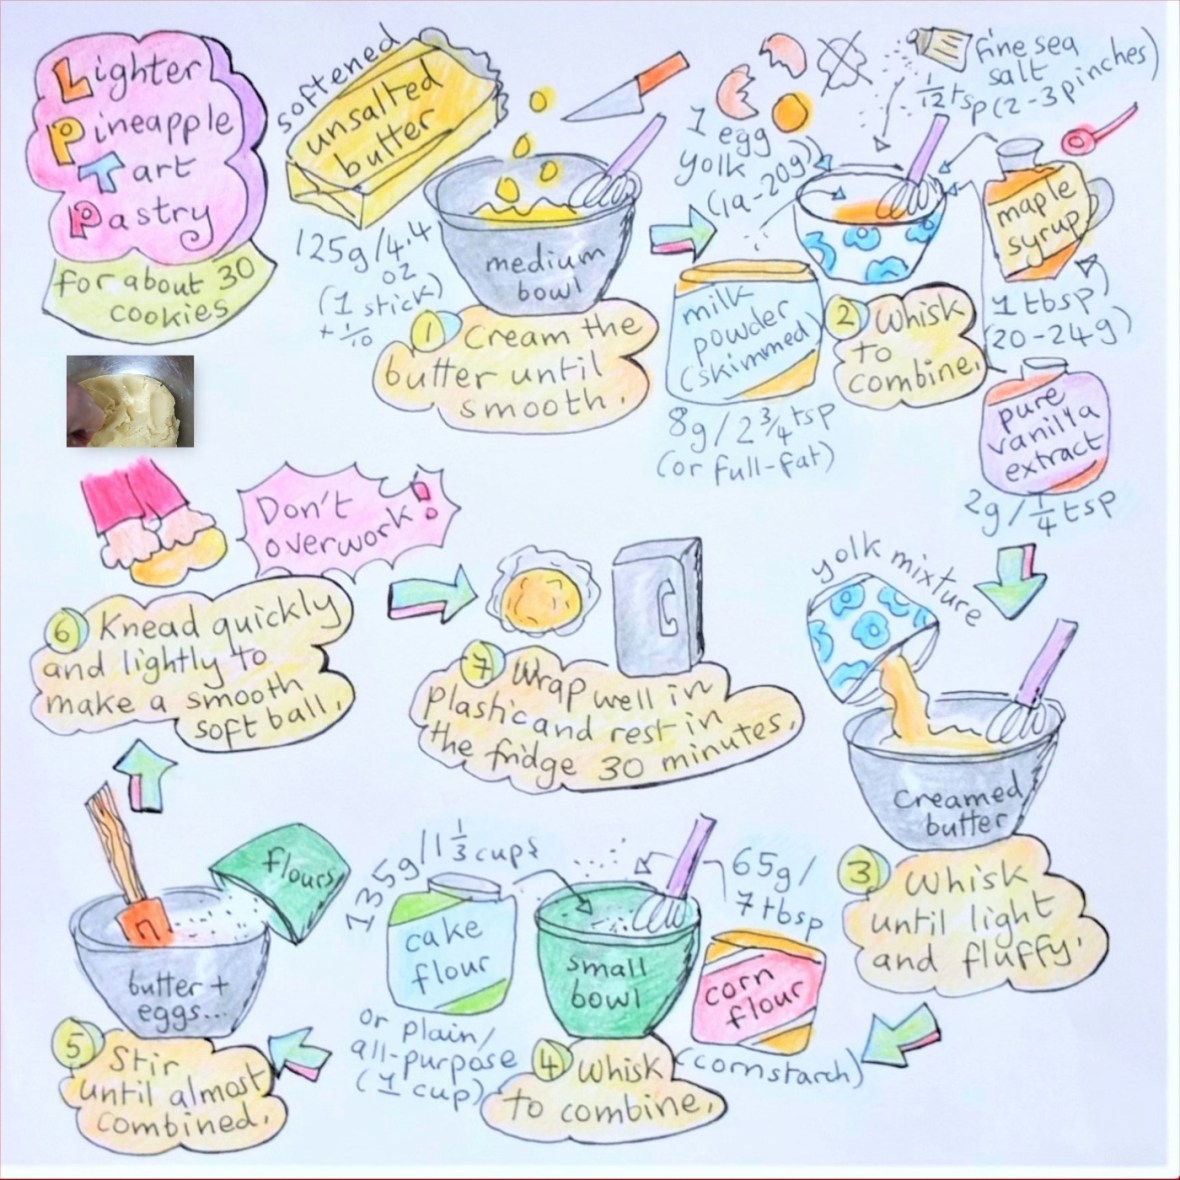 Lighter
Pineapple
Tart
Pastry
for about 30
cookies
softened
unsalted
butter
125g/4.4
oz
(1 stick)
+ 1/10
medium
bowl
1 Cream the
butter until
smooth.
1 egg
yolk
(19-20g)
fine sea
salt
1/12 tsp (2-3 pinches)
maple
syrup
1 tbsp
(20-24g)
milk
powder
(skimmed)
8g/2 3/4 tsp
(or full-fat)
2 Whisk
to
combine.
pure
vanilla
extract
2g/1/4 tsp
yolk mixture
creamed
butter
3 Whisk
until light
and fluffy.
135g/1 1/3 cups
cake
flour
or plain/
all-purpose
(1 cup)
small
bowl
65g/
7 tbsp
corn
flour
(cornstarch)
4 Whisk
to combine.
flours
butter +
eggs...
5 Stir
until almost
combined.
Don't
overwork!
6 Knead quickly
and lightly to
make a smooth
soft ball.
7 Wrap well in
plastic and rest in
the fridge 30 minutes.